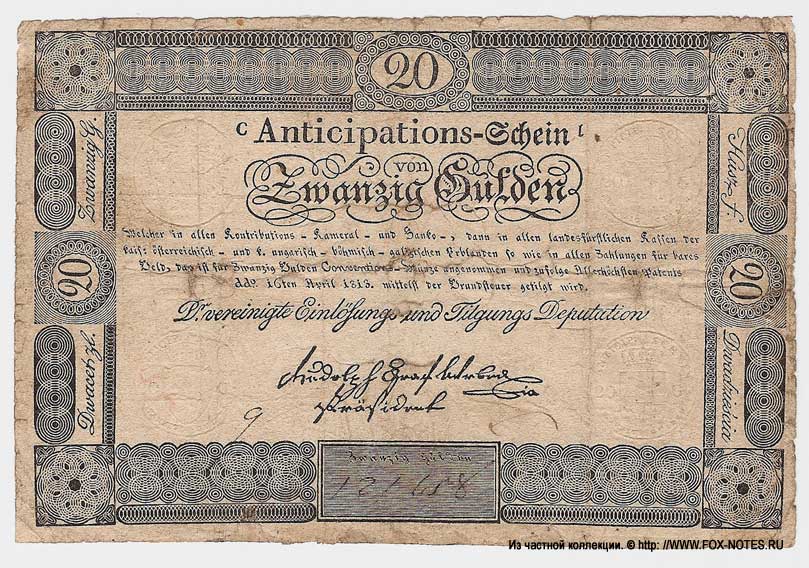 20
C Anticipations-Schein
von
Zwanzig Gulden
Welcher in allen Kontributions- Kameral- und Banko-, dann in allen landesfürstlichen Kassen der
kais: österreichisch- und k. ungarisch- böhmisch- galizischen Erblanden so wie in allen Zahlungen für bares
Geld, das ist für Zwanzig Gulden Conventions-Münze angenommen und zufolge Allerhöchsten Patents
ddo. 16ten April 1813. mittelst der Grundsteuer getilgt wird.
Dr. vereinigte Einlösungs und Tilgungs Deputation
Rudolph Graf
Präsident
9
Zwanzig Gulden
Zwanzig G.
20
Dwacet zl.
Húsz f.
20
Из частной коллекции. © http: //WWW.FOX-NOTES.RU